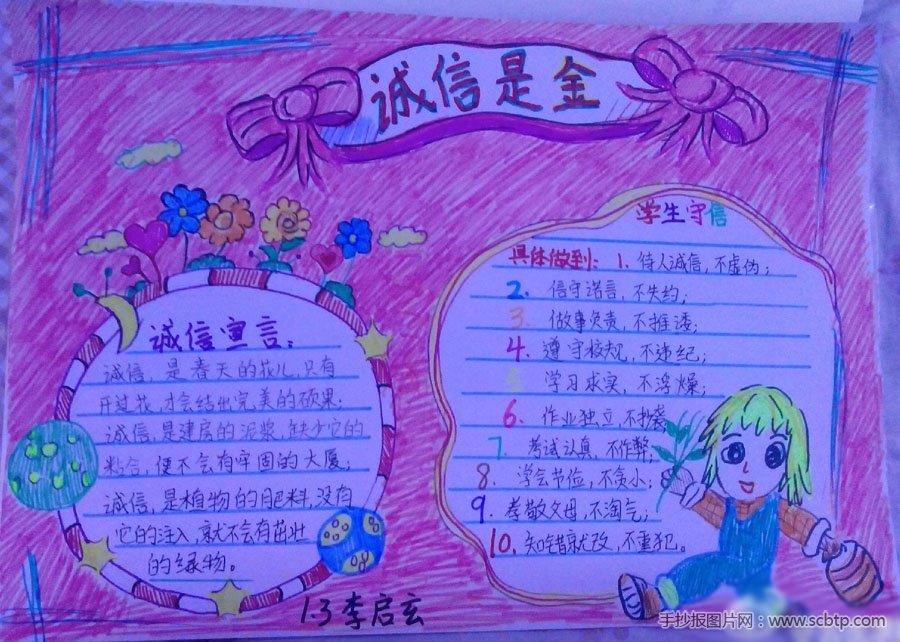 诚信是金
诚信宣言：
诚信，是春天的花儿，只有
开过花，才会结出完美的硕果；
诚信，是建房的泥浆，缺少它的
粘合，便不会有牢固的大厦；
诚信，是植物的肥料，没有
它的注入，就不会有茁壮
的绿物。
学生守信
具体做到：1. 待人诚信，不虚伪；
2. 信守诺言，不失约；
3. 做事负责，不推诿；
4. 遵守校规，不违纪；
5. 学习求实，不浮燥；
6. 作业独立，不抄袭
7. 考试认真，不作弊；
8. 学会节俭，不贪小；
9. 孝敬父母，不淘气；
10. 知错就改，不重犯。
1.3 李启玄
手抄报图片网：www.scbtp.com